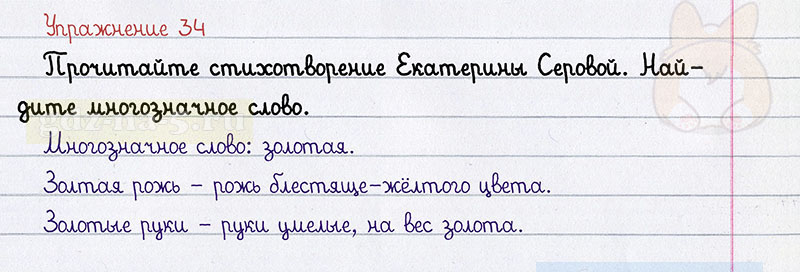 Упражнение 34
Прочитайте стихотворение Екатерины Серовой. Най-
дите многозначное слово.
Многозначное слово: золотая.
Золтая рожь – рожь блестяще-жёлтого цвета.
Золотые руки – руки умелые, на вес золота.